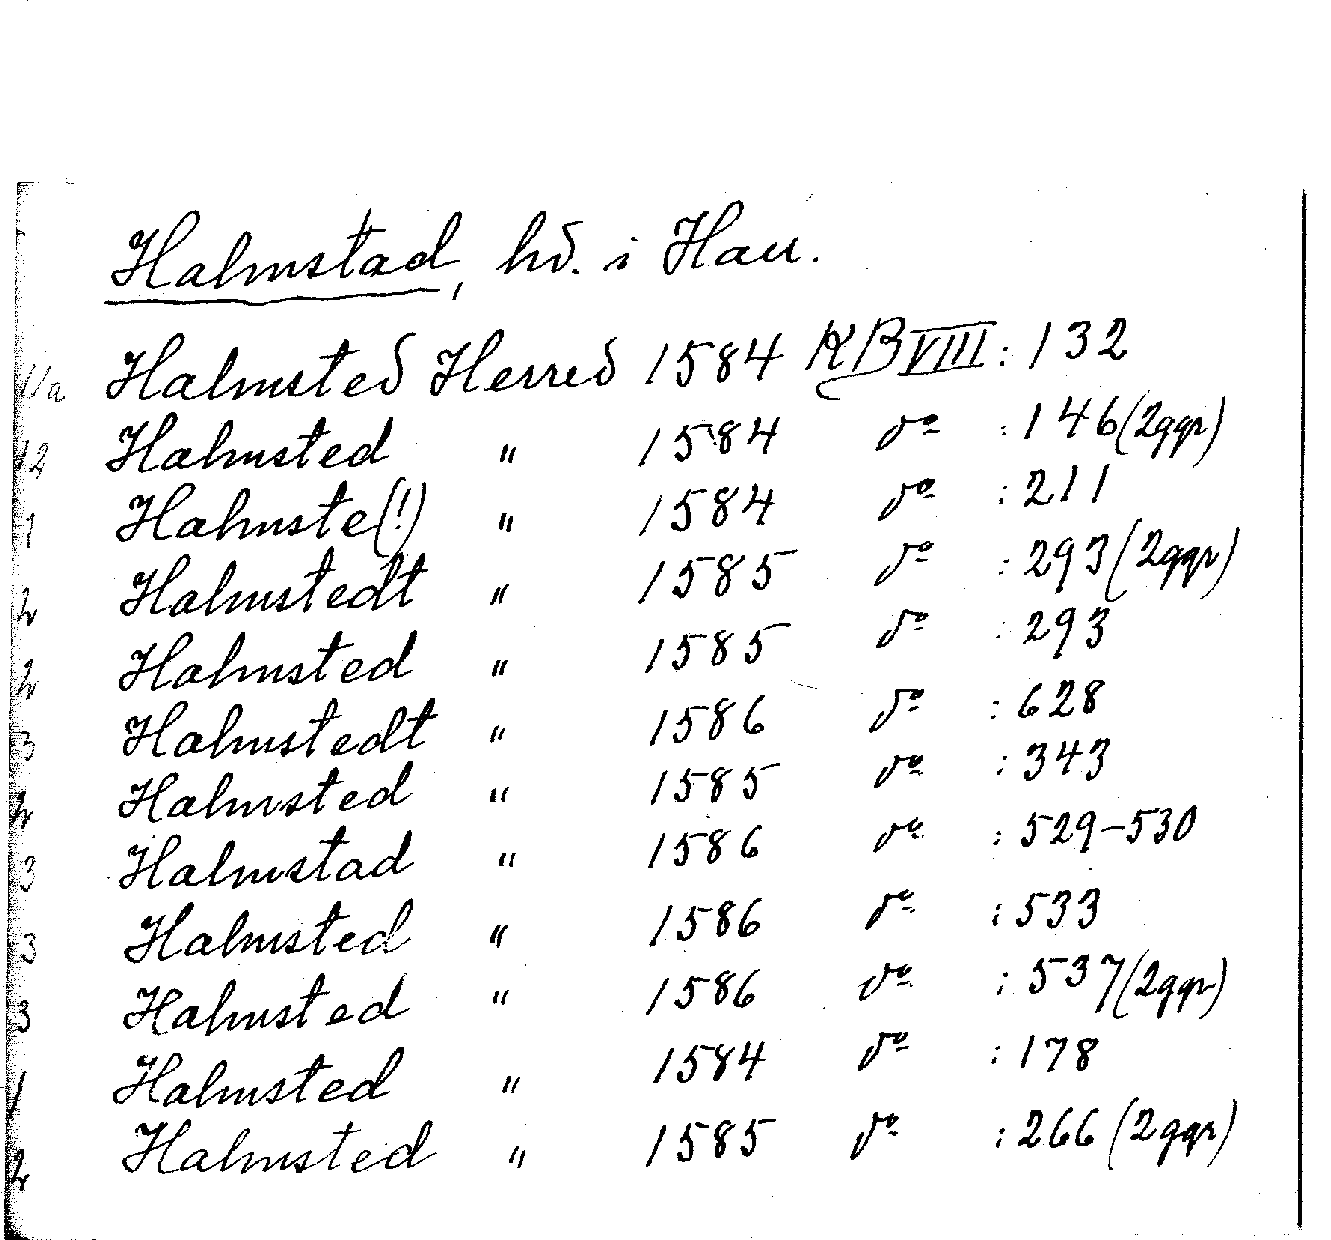 Halmstad, hd. i Hall.
Halmsted Herred 1584 KB VIII : 132
12 Halmsted " 1584 do : 146 (2ggr)
1 Halmste(!) " 1584 do : 211
2 Halmstedt " 1585 do : 293 (2ggr)
2 Halmsted " 1585 do : 293
3 Halmstedt " 1586 do : 628
2 Halmsted " 1585 do : 343
3 Halmstad " 1586 do : 529-530
3 Halmsted " 1586 do : 533
3 Halmsted " 1586 do : 537 (2ggr)
1 Halmsted " 1584 do : 178
2 Halmsted " 1585 do : 266 (2ggr)